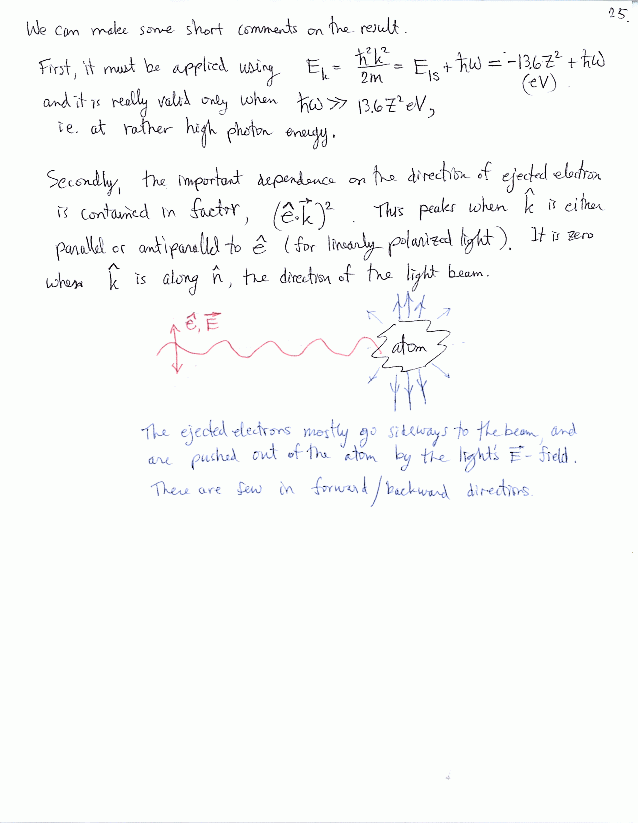 25.
We can make some short comments on the result.
First, it must be applied using E_k = ħ²k²/2m = E_1s + ħω = -13.6Z² + ħω
(eV)
and it is really valid only when ħω ≫ 13.6Z² eV,
i.e. at rather high photon energy.
Secondly, the important dependence on the direction of ejected electron
is contained in factor, (ê·k⃗)². This peaks when k̂ is either
parallel or antiparallel to ê (for linearly polarized light). It is zero
when k̂ is along n̂, the direction of the light beam.
ê, E⃗
atom
The ejected electrons mostly go sideways to the beam, and
are pushed out of the atom by the light's E⃗-field.
There are few in forward/backward directions.